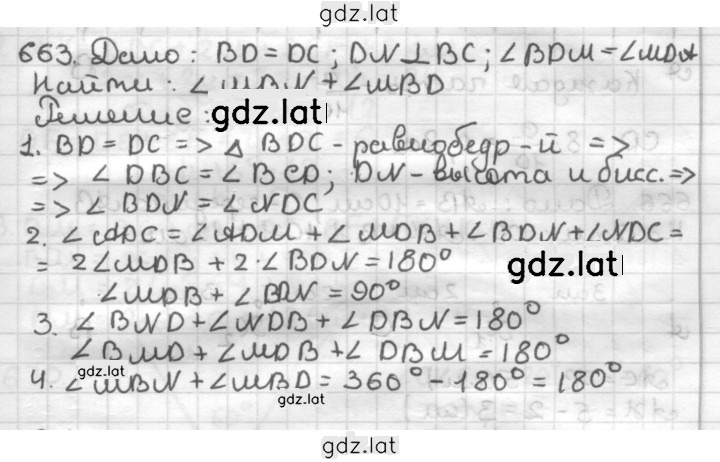 gdz.lat
663. Дано: BD = DC; DN⊥BC; ∠BDM = ∠MDA
Найти: ∠MBN + ∠MBD
Решение:
gdz.lat
1. BD = DC => △ BDC - равнобедр-й =>
=> ∠DBC = ∠BCD; DN - высота и бисс. =>
=> ∠BDN = ∠NDC.
2. ∠ADC = ∠ADM + ∠MDB + ∠BDN + ∠NDC =
= 2∠MDB + 2·∠BDN = 180°
gdz.lat
∠MDB + ∠BDN = 90°
3. ∠BND + ∠NDB + ∠DBN = 180°
∠BMD + ∠MDB + ∠DBM = 180°
gdz.lat
4. ∠MBN + ∠MBD = 360° - 180° = 180°
gdz.lat
gdz.lat